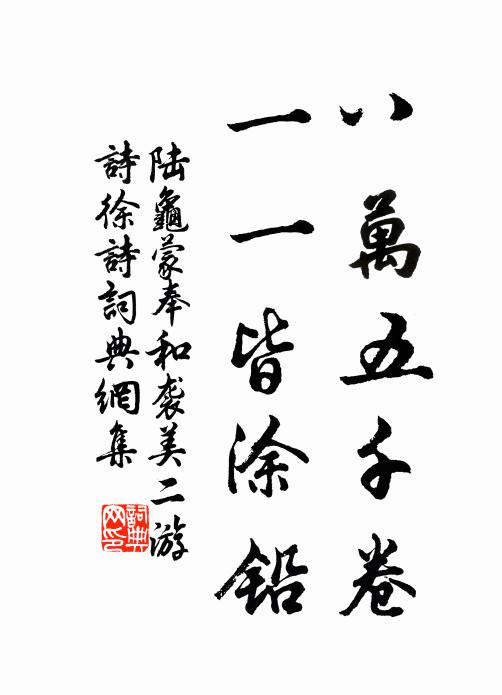 八萬五千卷
一一皆涂鉛
陆龜蒙奉和袭美二游
詩徐詩詞典網集
詞典网印